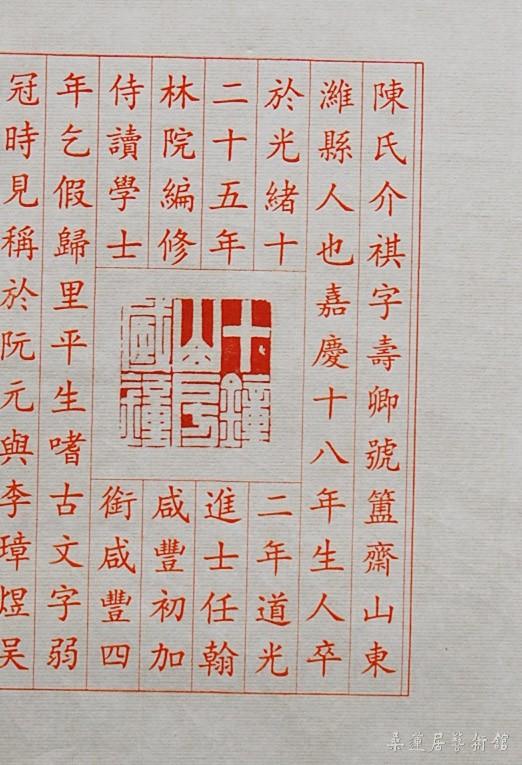 陳氏介祺字壽卿號簠齋山東
濰縣人也嘉慶十八年生人卒
於光緒十二年道光
二十五年進士任翰
林院編修咸豐初加
侍讀學士銜咸豐四
年乞假歸里平生嗜古文字弱
冠時見稱於阮元與李璋煜吳
十鐘
山房
藏鐘
桑蓮居藝術館